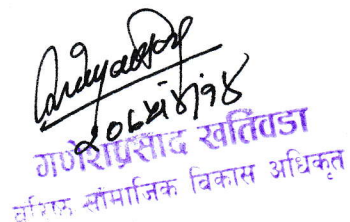 २०८१।४।१४
गणेशप्रसाद खतिवडा
वरिष्ठ सामाजिक विकास अधिकृत